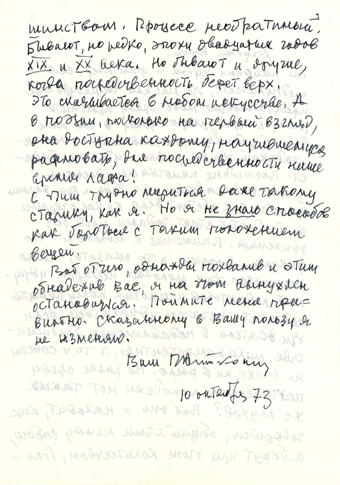 шинством. Процесс необратимый.
Бывают, но редко, эпохи двадцатых годов
XIX и XX века. Но бывают и другие,
когда посредственность берет верх.
Это сказывается в любом искусстве. А
в поэзии, поскольку на первый взгляд,
она доступна каждому, научившемуся
рифмовать, для посредственности нише
время лафа!
С этим трудно мириться даже такому
старику, как я. Но я не знаю способов
как бороться с таким положением
вещей.
Вот отчего, однажды похвалив и этим
обнадежив Вас, я на этом вынужден
остановиться. Поймите меня пра=
вильно. Сказанному в Вашу пользу я
не изменяю.
Ваш
10 октября 73